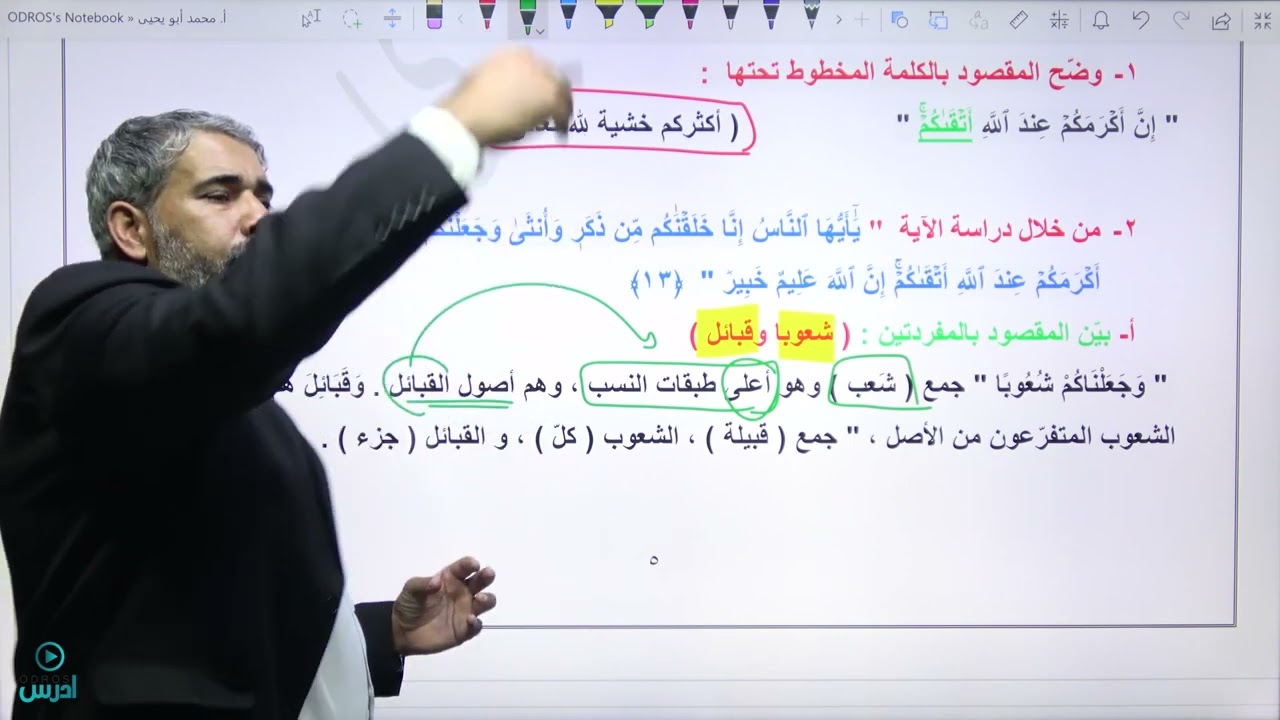 ODROS's Notebook » أ. محمد أبو يحيى
١- وضّح المقصود بالكلمة المخطوط تحتها :
" إِنَّ أَكْرَمَكُمْ عِندَ ٱللَّهِ أَتْقَىٰكُمْۚ " ( أكثركم خشية لله
٢- من خلال دراسة الآية " يَٰٓأَيُّهَا ٱلنَّاسُ إِنَّا خَلَقْنَٰكُم مِّن ذَكَرٍ وَأُنثَىٰ
أَكْرَمَكُمْ عِندَ ٱللَّهِ أَتْقَىٰكُمْۚ إِنَّ ٱللَّهَ عَلِيمٌ خَبِيرٌ " ﴿١٣﴾
أ- بيّن المقصود بالمفردتين : ( شعوبا وقبائل )
" وَجَعَلْنَاكُمْ شُعُوبًا " جمع ( شَعب ) وهو أعلى طبقات النسب ، وهم أصول القبائل . وَقَبَائِلَ
الشعوب المتفرّعون من الأصل ، " جمع ( قبيلة ) ، الشعوب ( كلّ ) ، و القبائل ( جزء ) .
٥
ODROS
ادرس